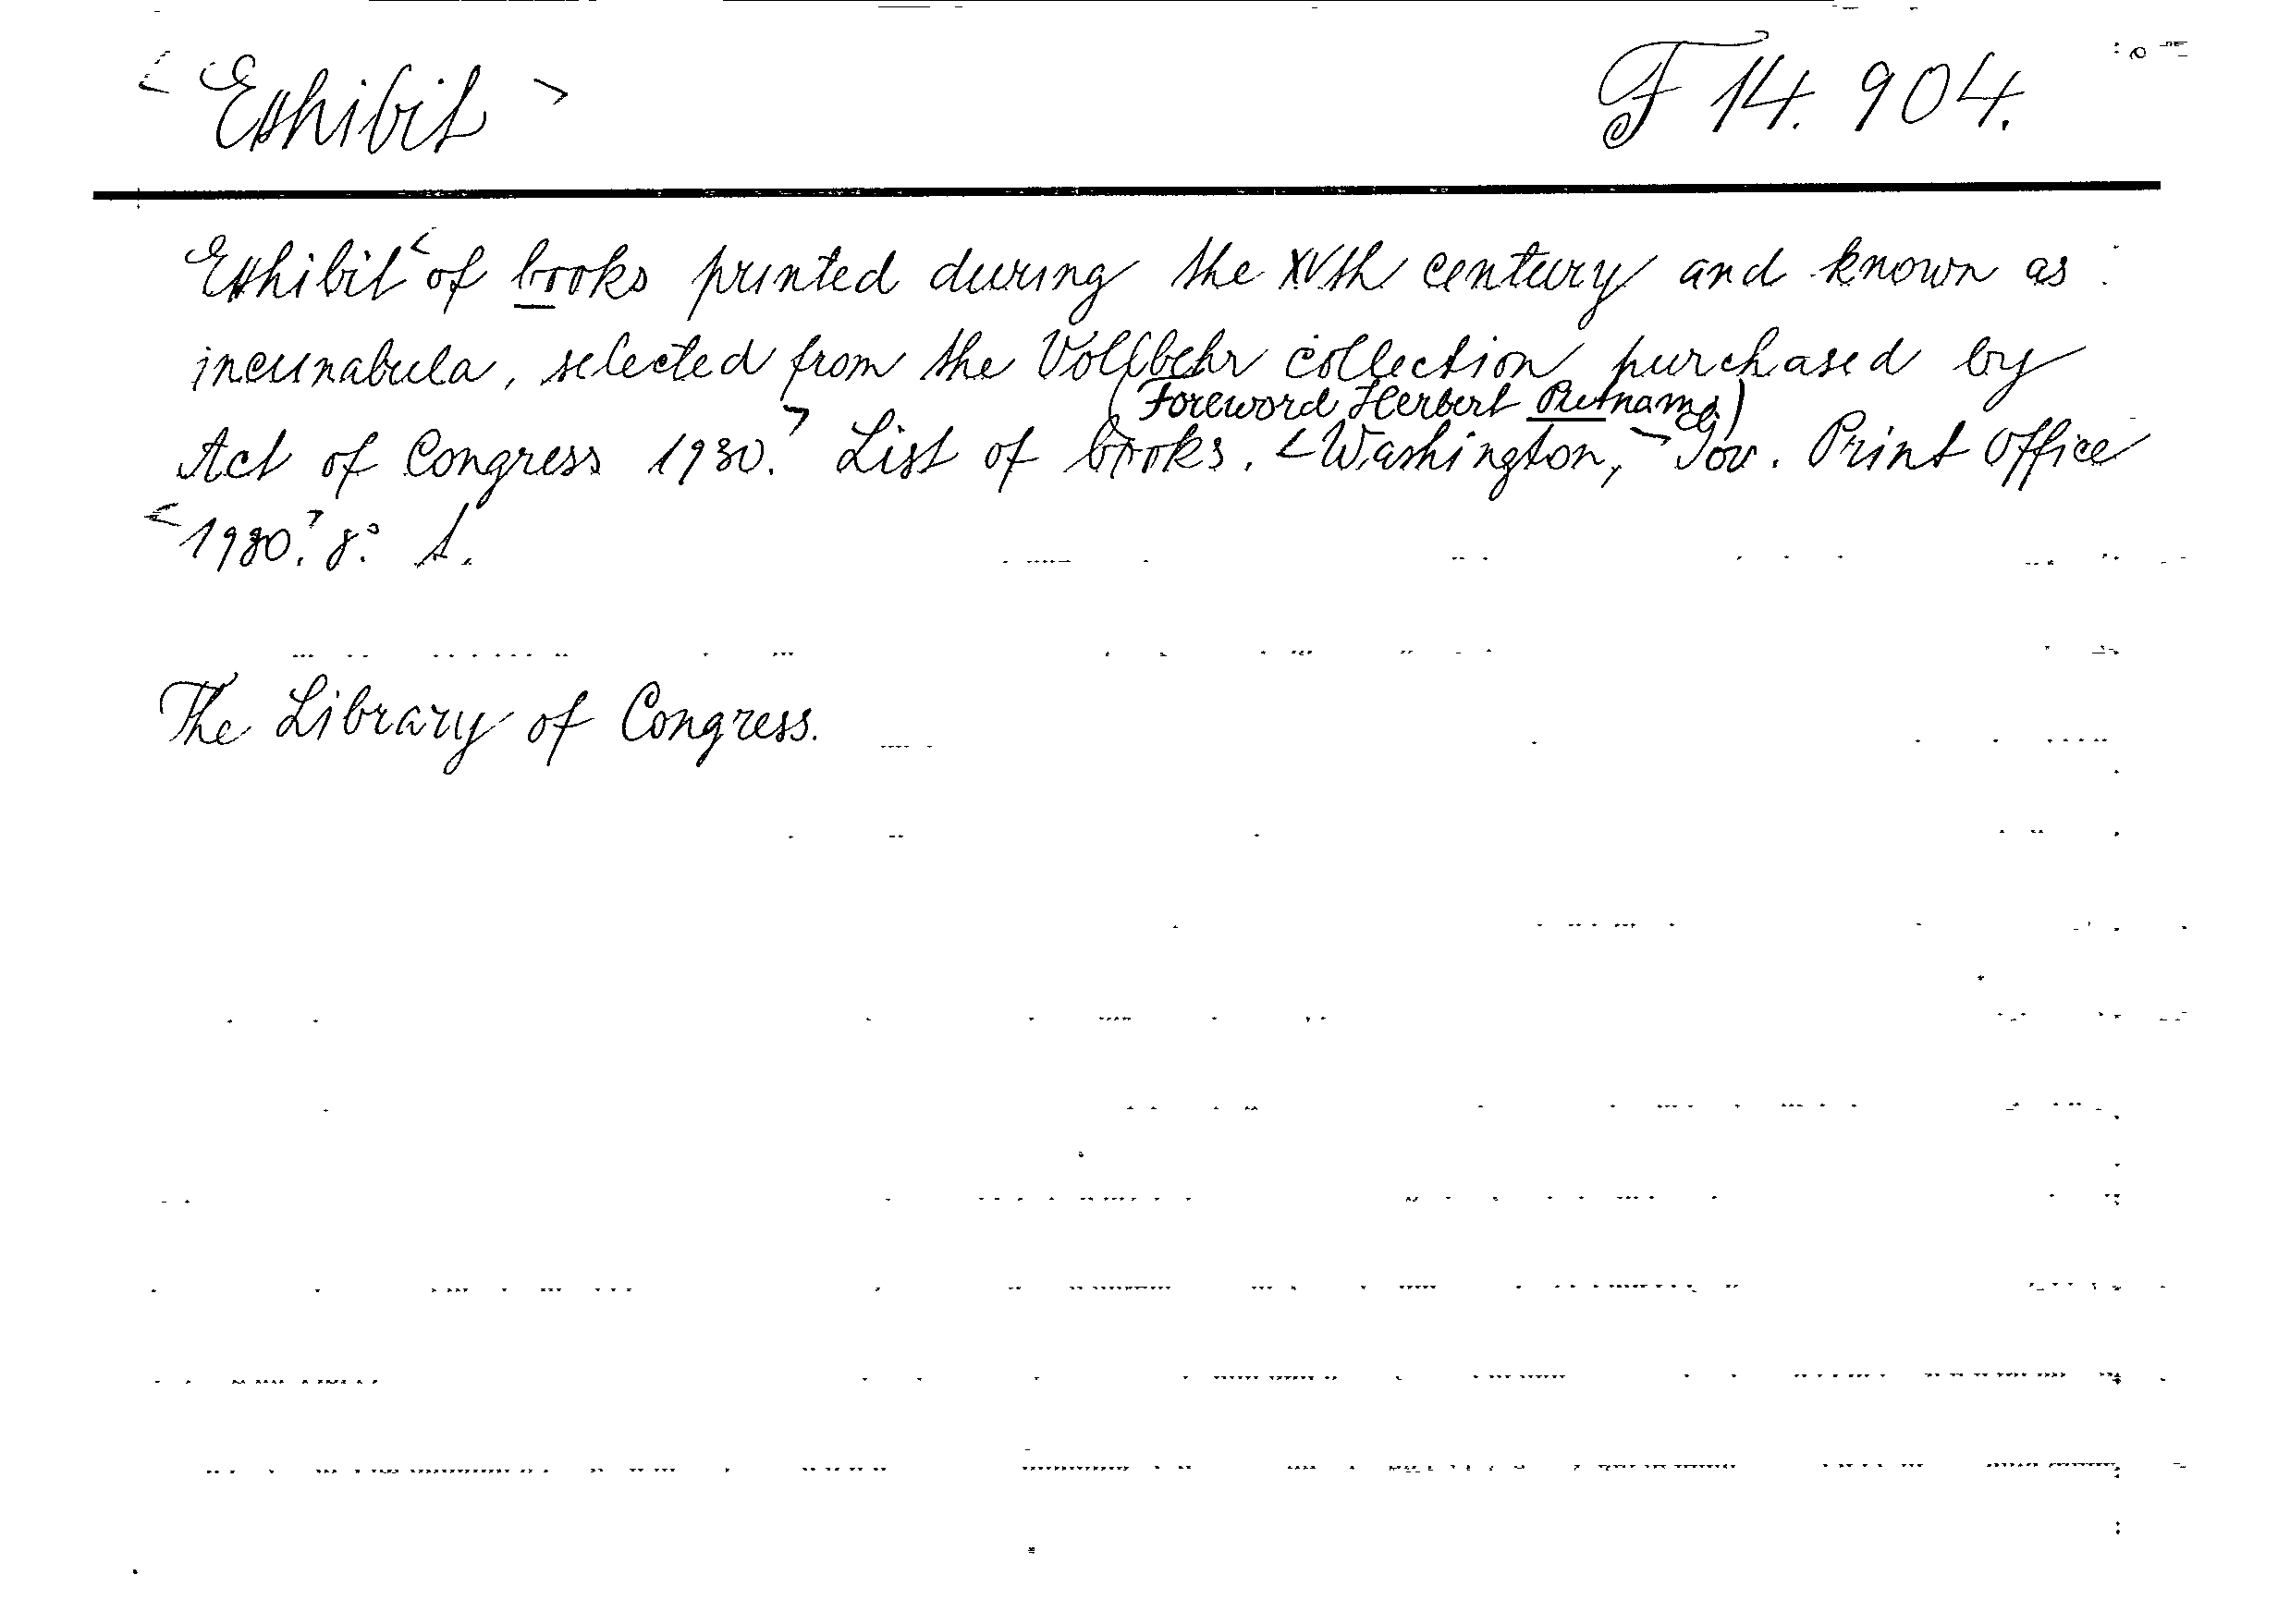 <Exhibit> F 14.904.
Exhibit <of books printed during the XVth century and known as
incunabula, selected from the Vollbehr collection purchased by
(Foreword Herbert Putnam.)
Act of Congress 1930.> List of books. <Washington,> Gov. Print Office
<1930.> 8°.
The Library of Congress.